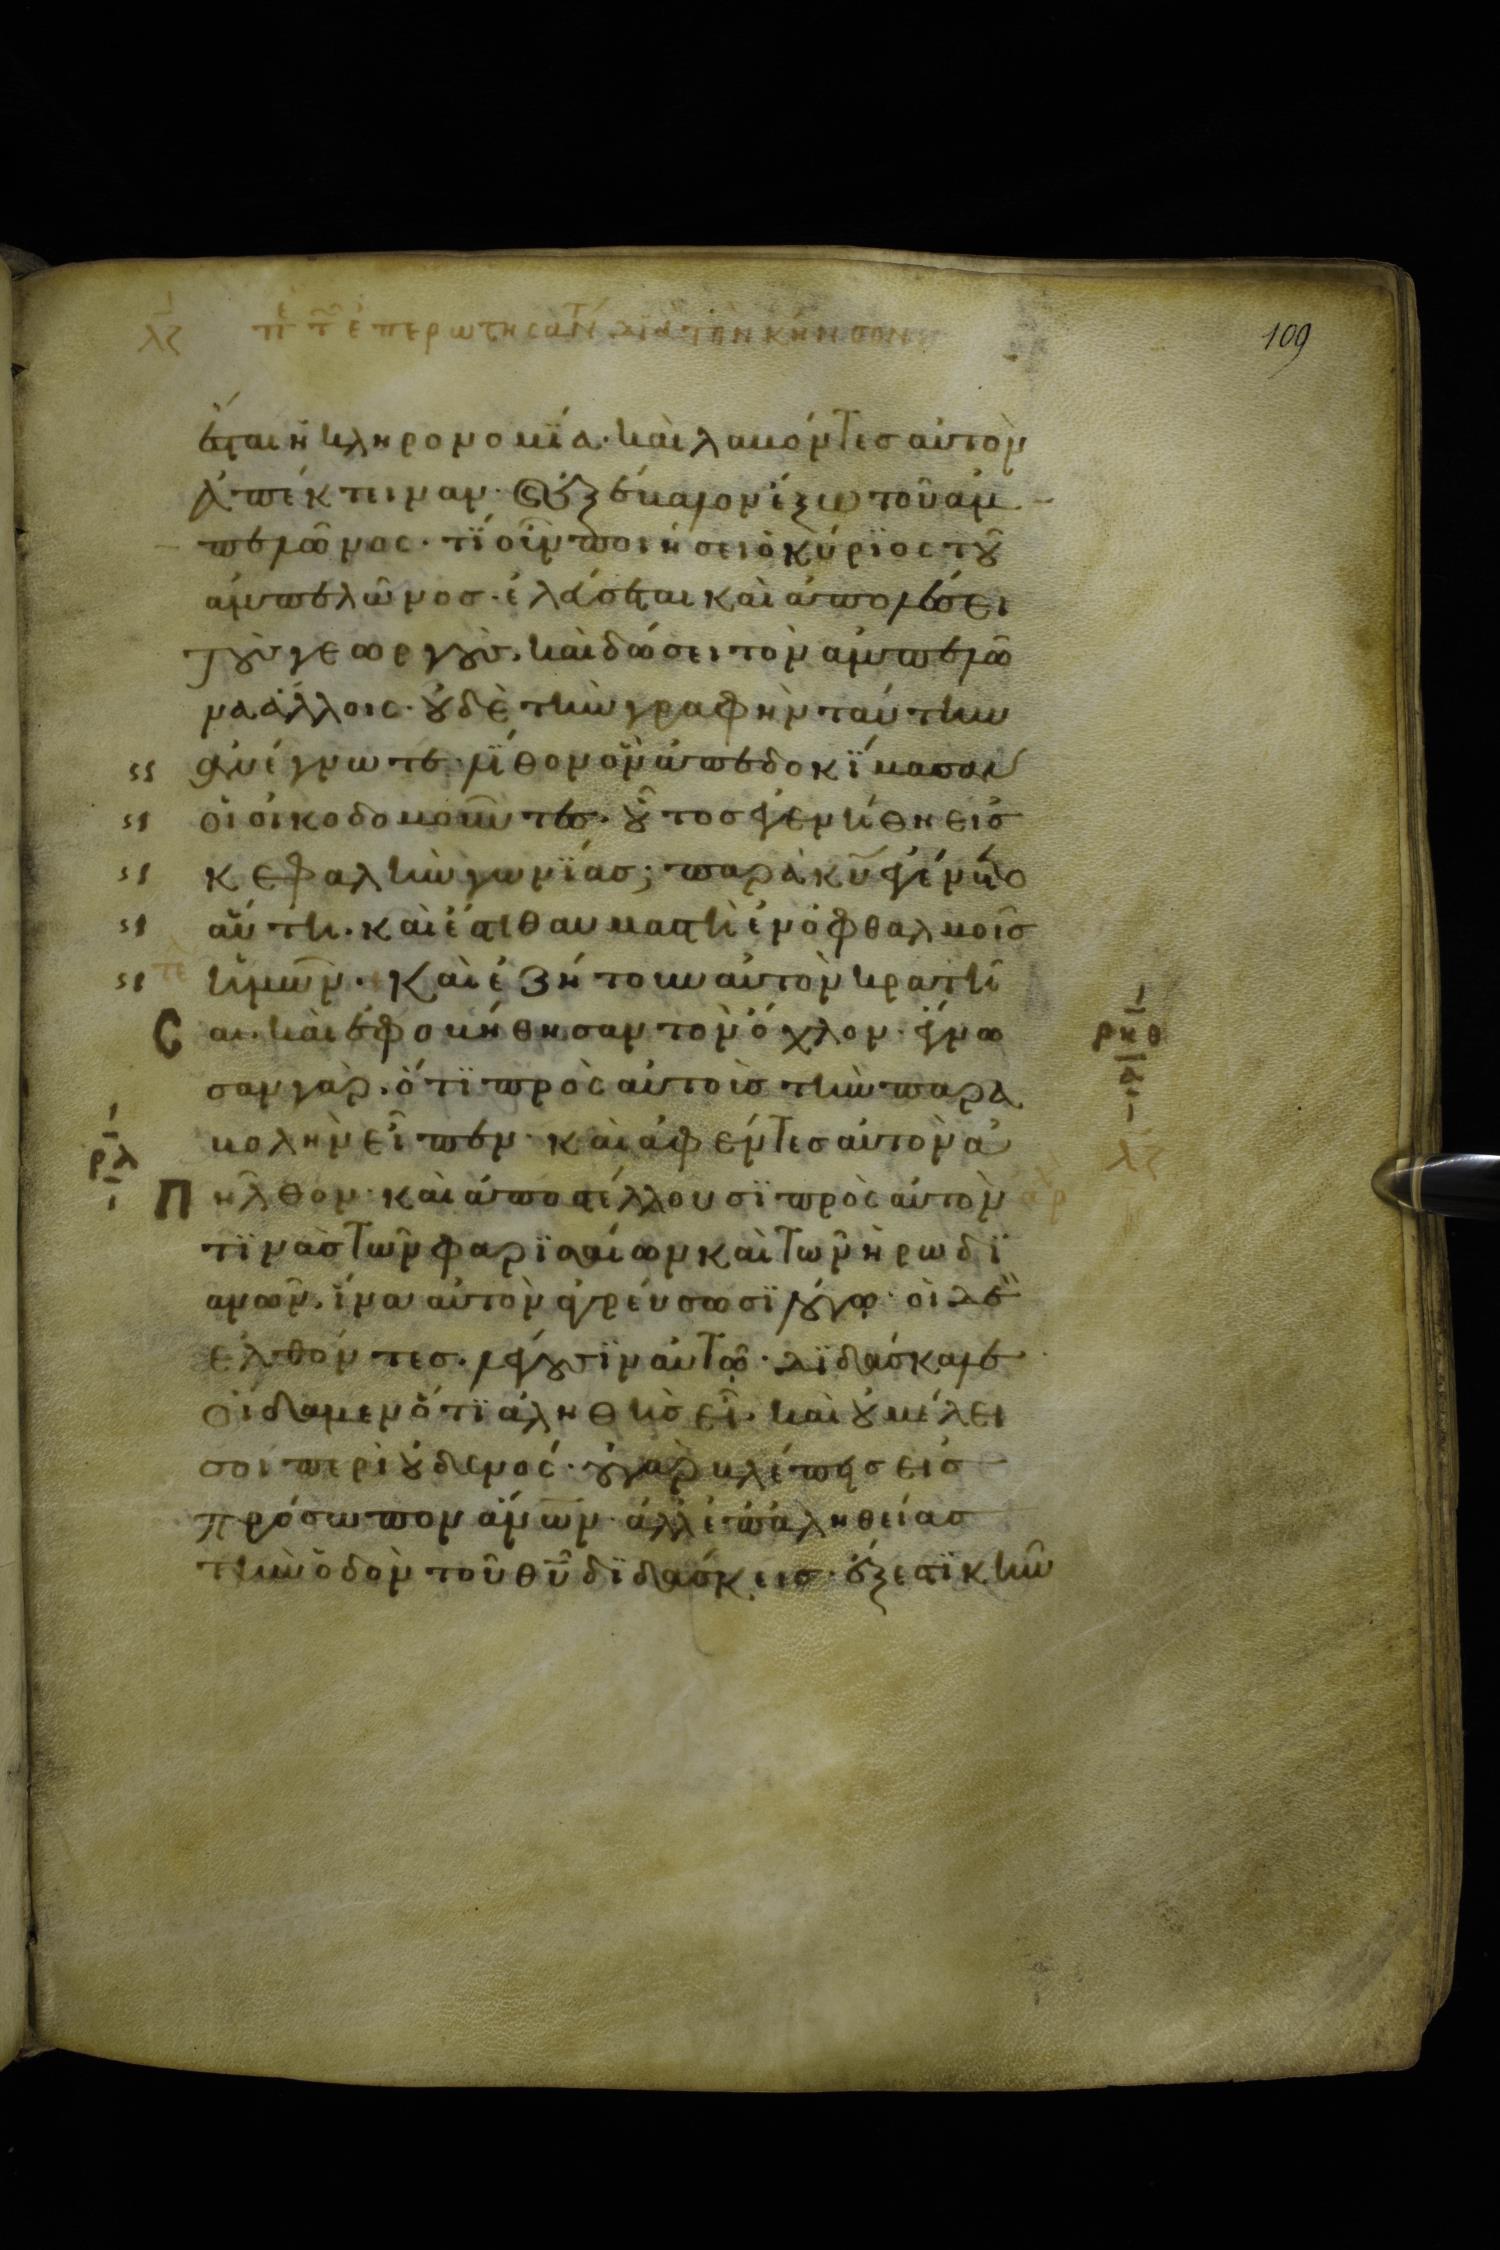 λζ π̅ε̅ τ̅ ἐπερωτησάντ διὰ τὸν κῆνσον
109
ἔσται ἡ κληρονομϊα· καὶ λαμόντες αὐτὸν
ἀπέκτειναν· ἐξέβαλον ἔξω τοῦ ἀμ
πελῶνος· τϊ οὖν ποιήσει ὁ κύρϊος τοῦ
ἀμπελῶνος· ἐλεύσεται καὶ ἀπολέσει
τοὺς γεωργοὺς, καὶ δώσει τὸν ἀμπελῶ
να ἄλλοις· οὐδὲ τὴν γραφὴν ταύτην
ἀνέγνωτε· λίθον ὃν ἀπεδοκϊμασαν
οἱ οἰκοδομοῦντες· οὗτος ἐγενήθη εἰς
κεφαλὴν γωνϊας; παρὰ κ̅υ̅ ἐγένετο
αὕτη. καὶ ἔστι θαυμαστὴ ἐν ὀφθαλμοῖς
ἡμῶν· Καὶ ἐζήτουν αὐτὸν κρατῆ
Cαι. καὶ ἐφοβήθησαν τὸν ὄχλον· ἔγνω
σαν γὰρ. ὅτϊ πρὸς αὐτοὺς τὴν παρα
βολὴν εἶπεν· καὶ ἀφέντες αὐτὸν ἀ
Πῆλθον· καὶ ἀποστέλλουσϊ πρὸς αὐτὸν
τϊνὰς τῶν φαρϊσαίων καὶ τῶν ἡρωδϊ
ανῶν. ἵνα αὐτὸν ἀγρεύσωσϊ λόγῳ· οἱ δὲ
ἐλθόντες. λέγουσϊν αὐτῷ· δϊδάσκαλε
οἴδαμεν ὅτϊ ἀληθὴς εἶ· καὶ οὐ μέλει
σοι περὶ οὐδενός· οὐ γὰρ βλέπεις εἰς
πρόσωπον ἀ̅ν̅ω̅ν̅· ἀλλ ἐπ ἀληθείας
τὴν ὁδὸν τοῦ θ̅υ̅ δϊδάσκεις· ἔξεστϊ κῆν
ρκθ
α
λζ
ρλ
α
τε
ἀρ